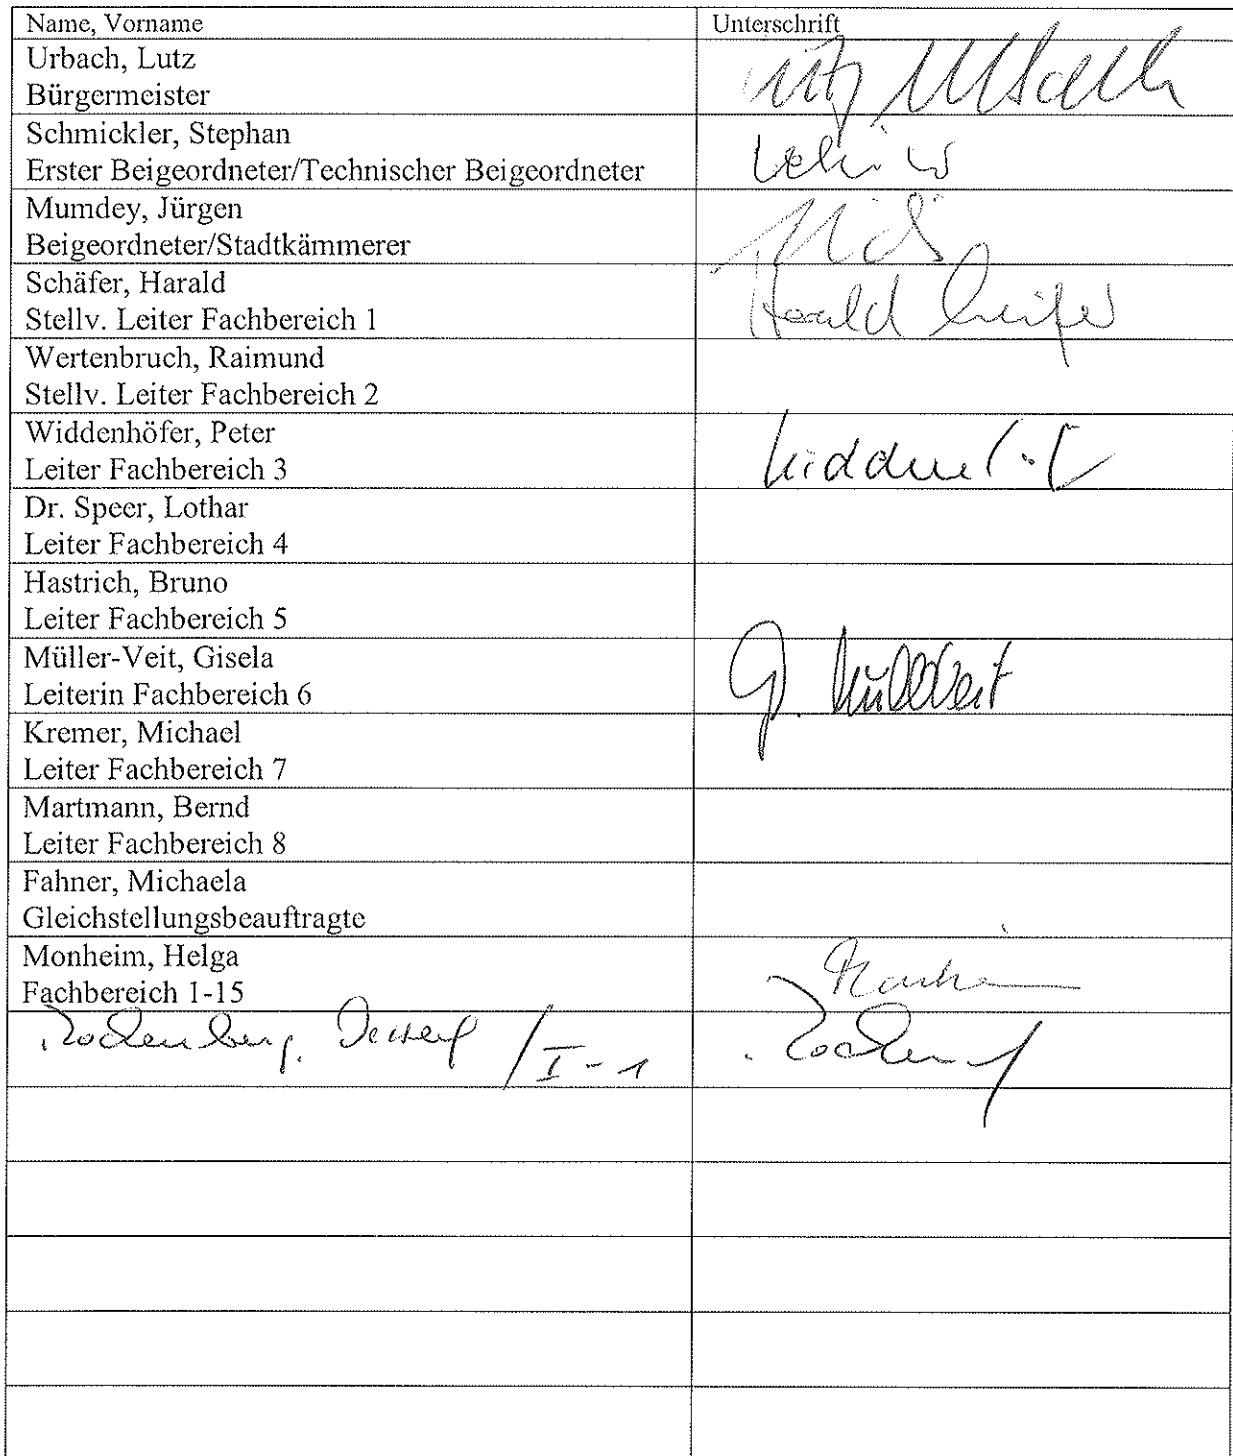 Name, Vorname Unterschrift
Urbach, Lutz
Bürgermeister
Lutz Urbach
Schmickler, Stephan
Erster Beigeordneter/Technischer Beigeordneter
Mumdey, Jürgen
Beigeordneter/Stadtkämmerer
Schäfer, Harald
Stellv. Leiter Fachbereich 1
Harald Schäfer
Wertenbruch, Raimund
Stellv. Leiter Fachbereich 2
Widdenhöfer, Peter
Leiter Fachbereich 3
Dr. Speer, Lothar
Leiter Fachbereich 4
Hastrich, Bruno
Leiter Fachbereich 5
Müller-Veit, Gisela
Leiterin Fachbereich 6
G. Müller-Veit
Kremer, Michael
Leiter Fachbereich 7
Martmann, Bernd
Leiter Fachbereich 8
Fahner, Michaela
Gleichstellungsbeauftragte
Monheim, Helga
Fachbereich 1-15
Monheim
/I-1